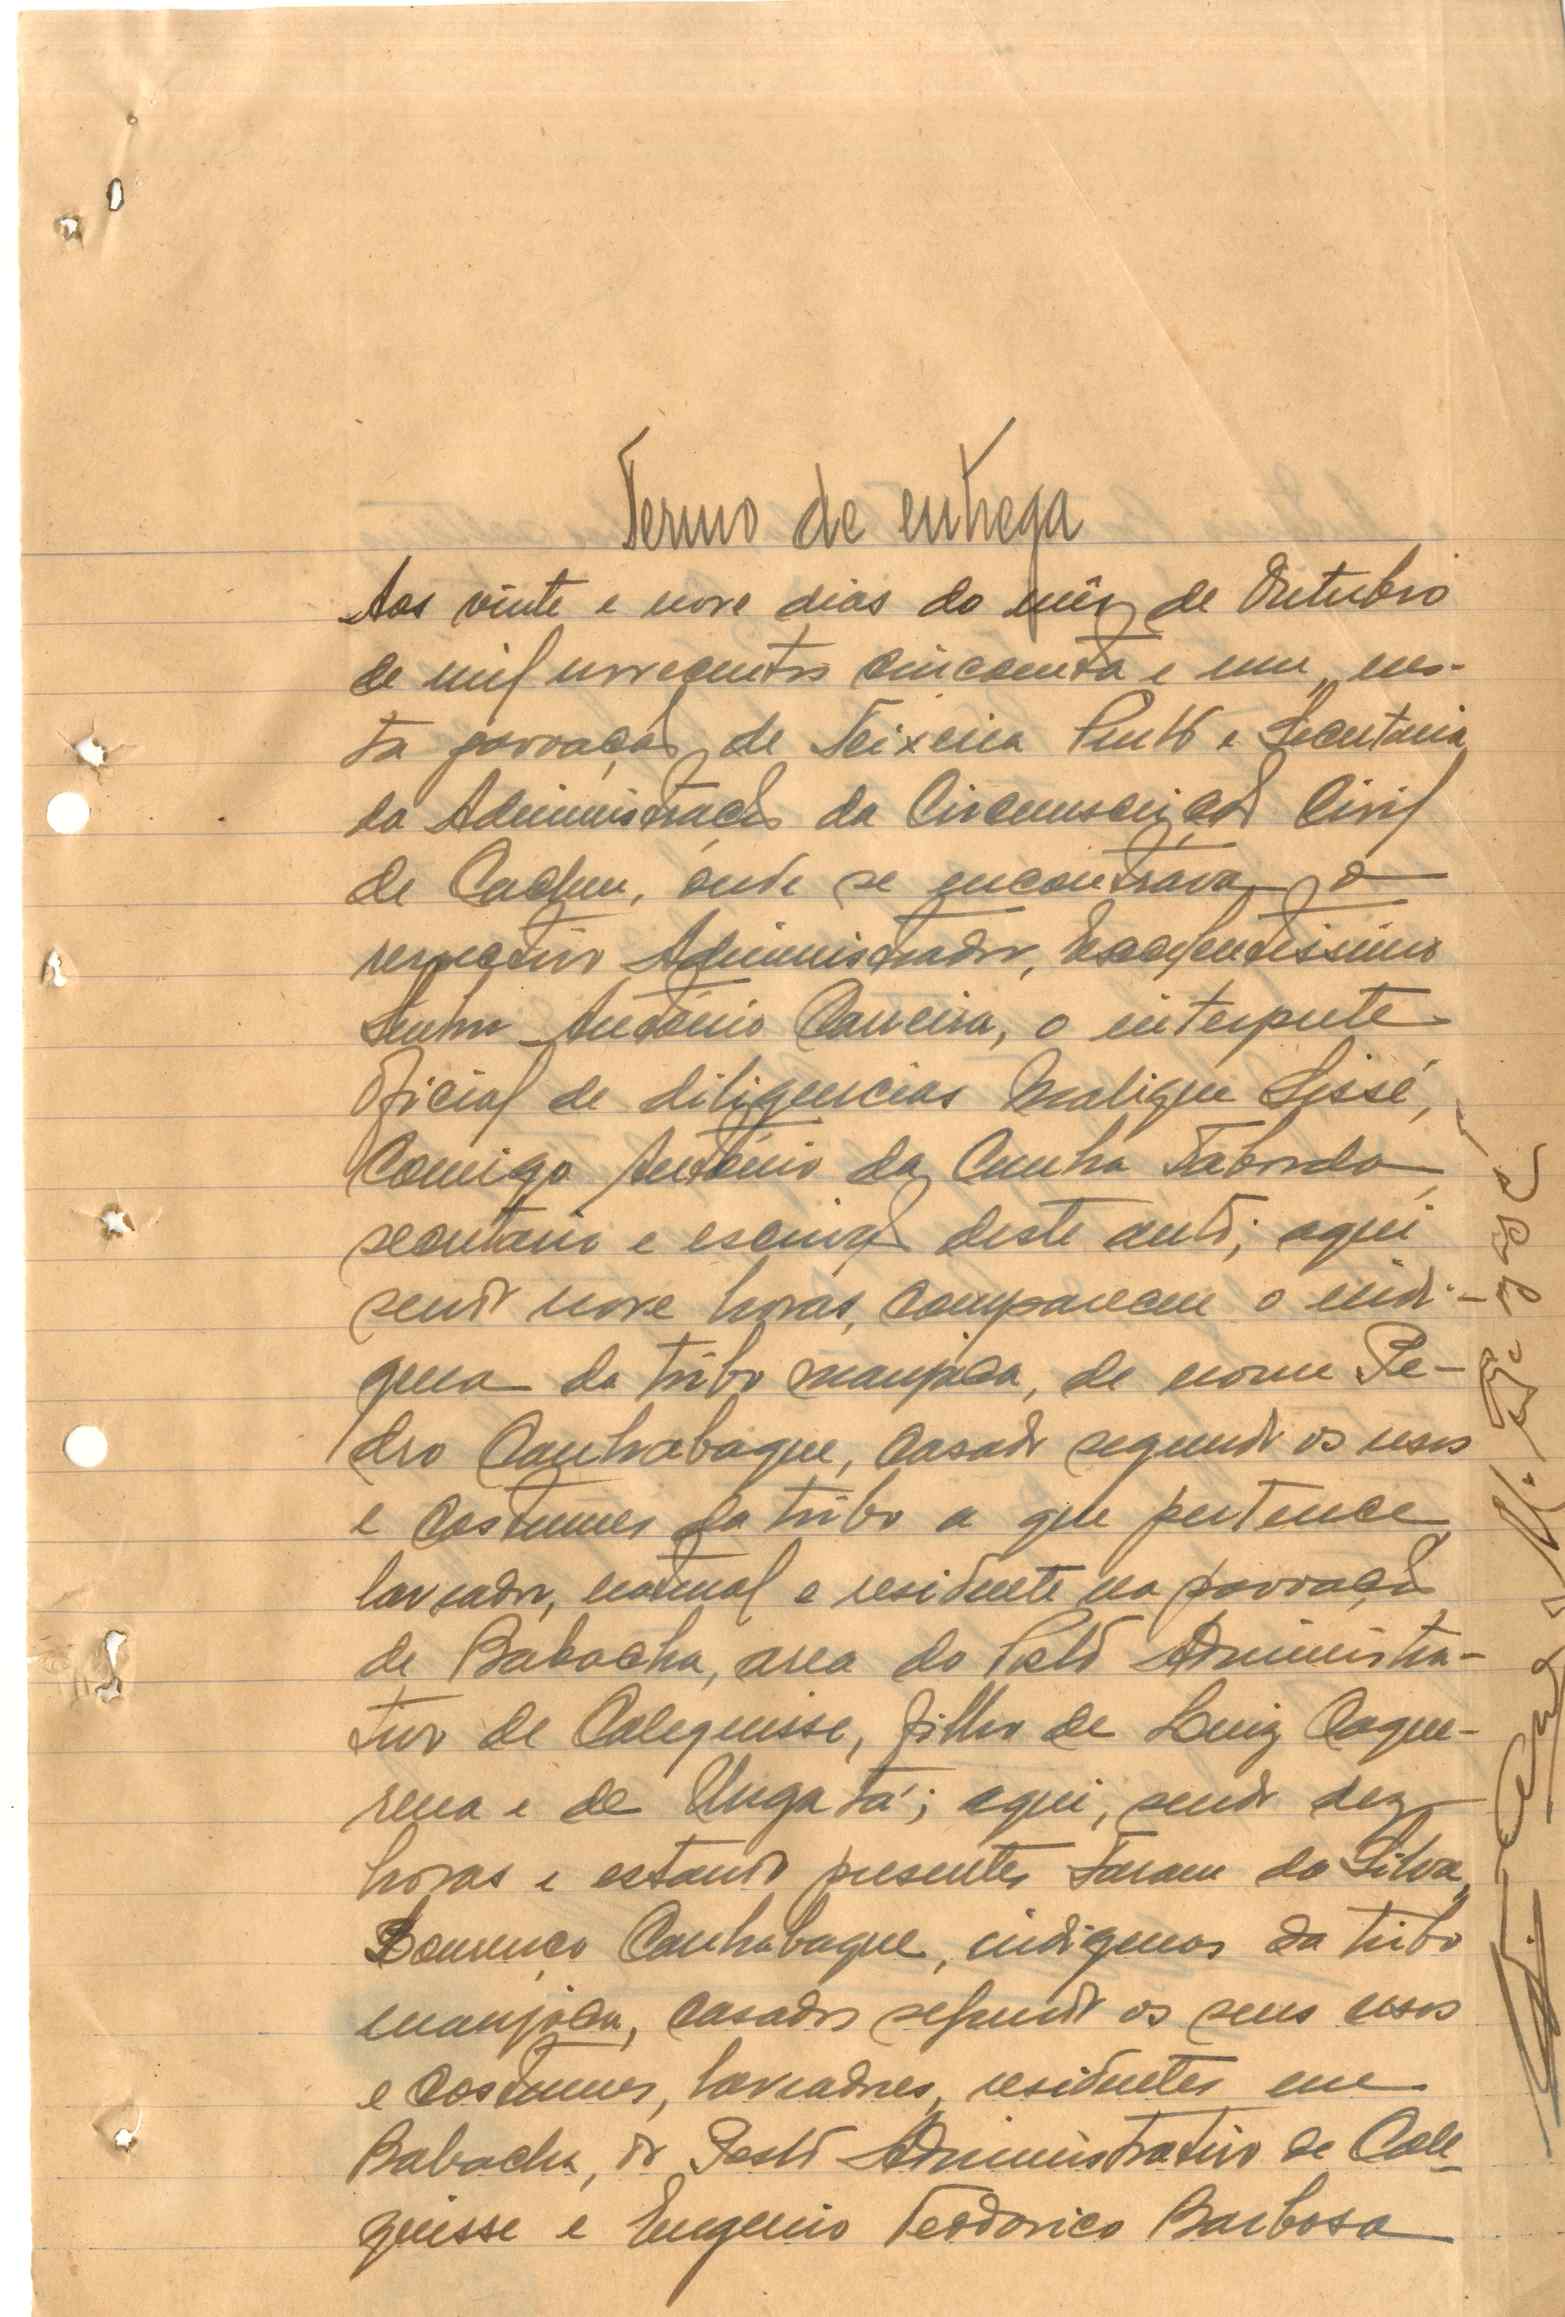 Termo de entrega
Aos vinte e nove dias do mês de Outubro
de mil novecentos cincoenta e um, nes-
ta povoação de Teixeira Pinto e Secretaria
da Administração da Circunscrição Civil
de Cacheu, onde se encontrava o
respectivo Administrador, Excelentissimo
Senhor António Carreira, o interprete
oficial de diligencias Malique Sissé,
Comigo António da Cunha Taborda
secretario e escrivão deste auto; aqui
sendo nove horas, compareceu o indi-
gena da tribo manjaca, de nome Pe-
dro Canhabaque, casado segundo os usos
e costumes da tribo a que pertence
lavrador, natural e residente na povoação
de Babacha, area do Posto Administra-
tivo de Calequisse, filho de Luiz Caque-
rena e de Unga tá; aqui, sendo dez
horas e estando presentes Faram da Silva,
Lourenço Canhabaque, indigenas da tribo
manjaca, casados segundo os seus usos
e costumes, lavradores, residentes em
Babacha, do Posto Administrativo de Cale-
quisse e Eugenio Teodorico Barbosa